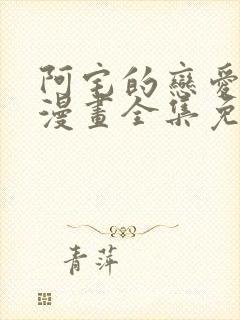 阿宅的戀愛
漫畫全集免
青萍